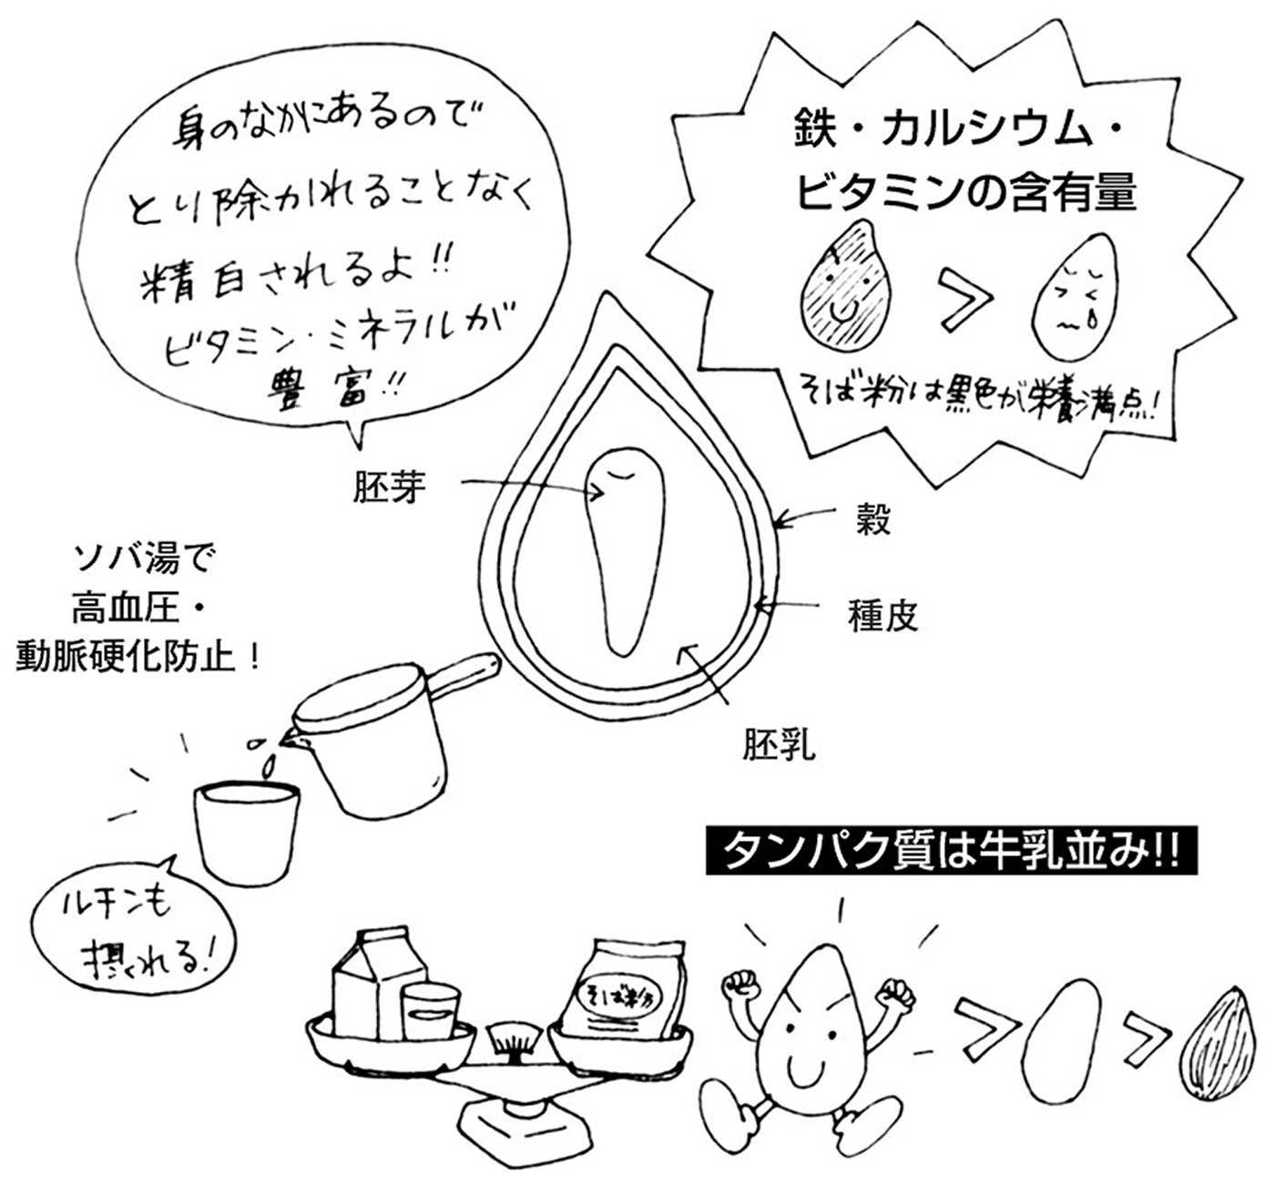 身のなかにあるので
とり除かれることなく
精白されるよ!!
ビタミン・ミネラルが
豊富!!
鉄・カルシウム・
ビタミンの含有量
>
そば粉は黒色が栄養満点!
胚芽
穀
種皮
胚乳
ソバ湯で
高血圧・
動脈硬化防止！
ルチンも
摂れる!
タンパク質は牛乳並み!!
そば粉
> >